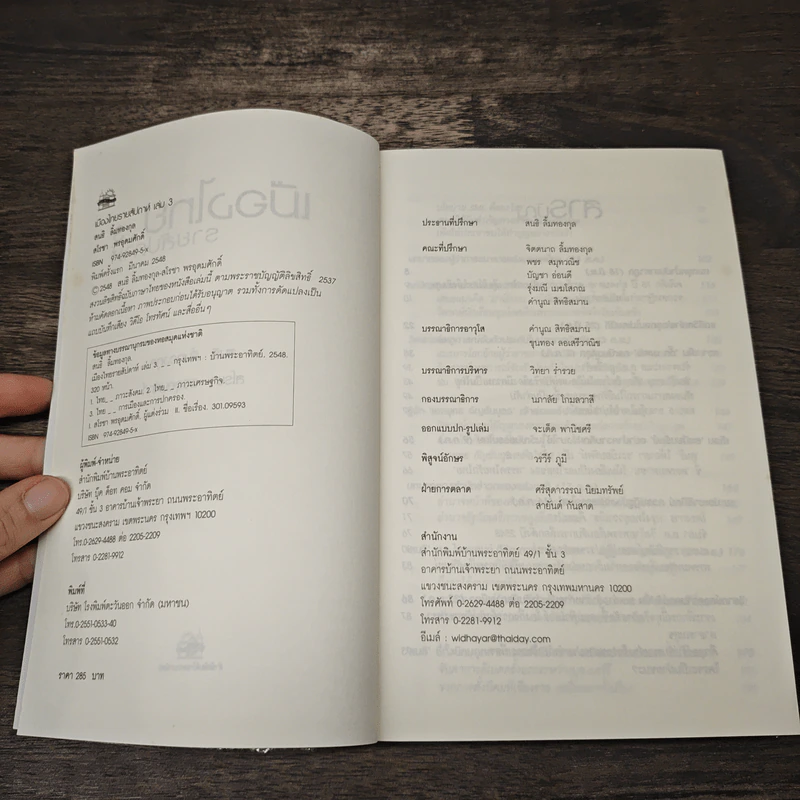 เมืองไทยรายสัปดาห์ เล่ม 3
สนธิ ลิ้มทองกุล
สโรชา พรอุดมศักดิ์
ISBN 974-92849-5-x
พิมพ์ครั้งแรก มีนาคม 2548
©2548 สนธิ ลิ้มทองกุล-สโรชา พรอุดมศักดิ์
สงวนลิขสิทธิ์ฉบับภาษาไทยของหนังสือเล่มนี้ ตามพระราชบัญญัติลิขสิทธิ์ 2537
ห้ามคัดลอกเนื้อหา ภาพประกอบก่อนได้รับอนุญาต รวมทั้งการดัดแปลงเป็น
แถบบันทึกเสียง วิดีโอ โทรทัศน์ และสื่ออื่นๆ
ข้อมูลทางบรรณานุกรมของหอสมุดแห่งชาติ
สนธิ ลิ้มทองกุล.
เมืองไทยรายสัปดาห์ เล่ม 3._ _ กรุงเทพฯ : บ้านพระอาทิตย์, 2548.
320 หน้า.
1. ไทย_ _ ภาวะสังคม. 2. ไทย_ _ ภาวะเศรษฐกิจ.
3. ไทย _ _ การเมืองและการปกครอง.
I. สโรชา พรอุดมศักดิ์, ผู้แต่งร่วม II. ชื่อเรื่อง. 301.09593
ISBN 974-92849-5-x
ผู้พิมพ์-จำหน่าย
สำนักพิมพ์บ้านพระอาทิตย์
บริษัท บุ๊ค ด็อท คอม จำกัด
49/1 ชั้น 3 อาคารบ้านเจ้าพระยา ถนนพระอาทิตย์
แขวงชนะสงคราม เขตพระนคร กรุงเทพฯ 10200
โทร.0-2629-4488 ต่อ 2205-2209
โทรสาร 0-2281-9912
พิมพ์ที่
บริษัท โรงพิมพ์ตะวันออก จำกัด (มหาชน)
โทร.0-2551-0533-40
โทรสาร 0-2551-0532
ราคา 285 บาท
ประธานที่ปรึกษา สนธิ ลิ้มทองกุล
คณะที่ปรึกษา จิตตนาถ ลิ้มทองกุล
พชร สมุทวณิช
ปัญชา อ่อนดี
รุ่งมณี เมฆโสภณ
คำนูณ สิทธิสมาน
บรรณาธิการอาวุโส คำนูณ สิทธิสมาน
ขุนทอง ลอเสรีวานิช
บรรณาธิการบริหาร วิทยา ร่ำรวย
กองบรรณาธิการ นภาลัย โกมลวาสี
ออกแบบปก-รูปเล่ม จะเด็ด พานิชศรี
พิสูจน์อักษร วรวีร์ ภูมี
ฝ่ายการตลาด ศรีสุดาวรรณ นิยมทรัพย์
สายันต์ กันสาด
สำนักงาน
สำนักพิมพ์บ้านพระอาทิตย์ 49/1 ชั้น 3
อาคารบ้านเจ้าพระยา ถนนพระอาทิตย์
แขวงชนะสงคราม เขตพระนคร กรุงเทพมหานคร 10200
โทรศัพท์ 0-2629-4488 ต่อ 2205-2209
โทรสาร 0-2281-9912
อีเมล์ : widhayar@thaiday.com